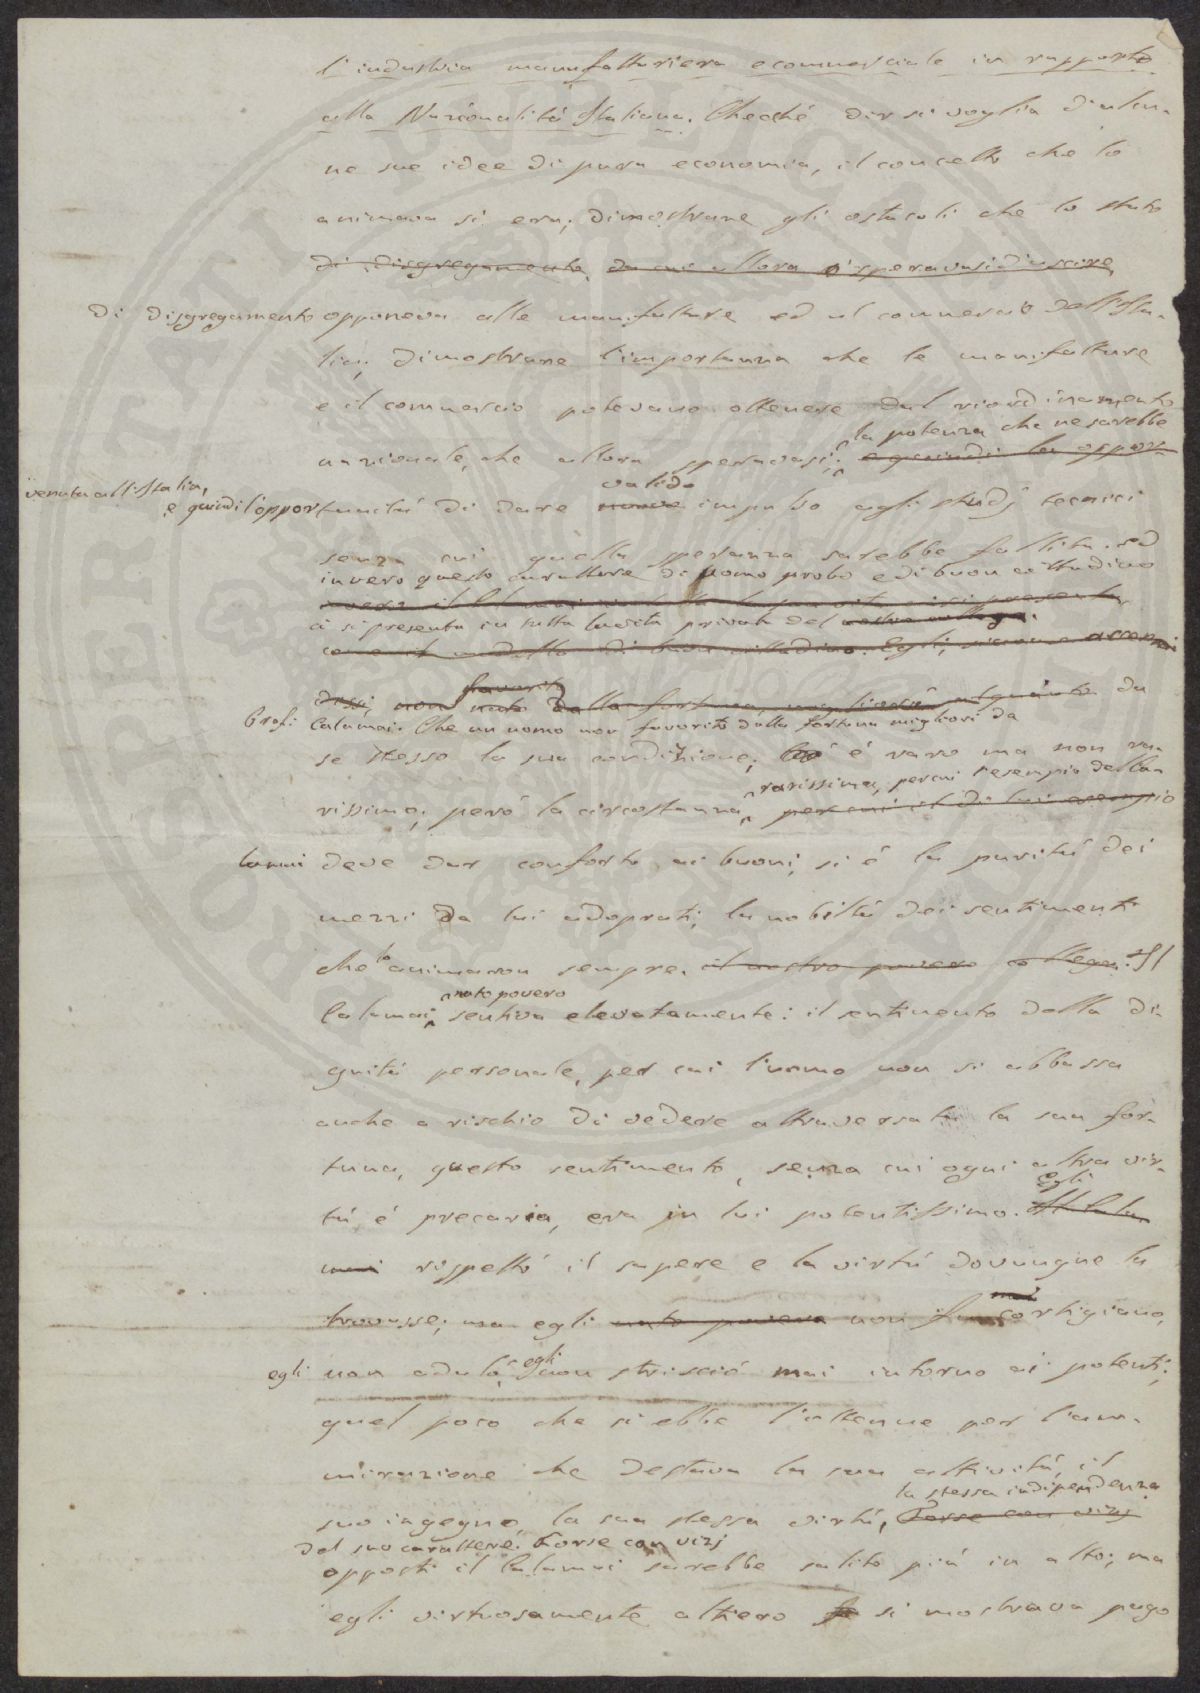 l'industria manufatturiera e commerciale in rapporto
alla Nazionalità Italiana. Checchè dir si voglia d'alcu-
ne sue idee di pura economia, il concetto che lo
animava si era; dimostrare gli ostacoli che lo stato
di disgregamento, da cui allora si sperava si di uscire,
di disgregamento opponeva alle manifatture ed al commercio dell'Ita-
lia; dimostrare l'importanza che le manifatture
e il commercio potevano ottenere dal riordinamento
la potenza che ne sarebbe
nazionale, che allora speravasi; e quindi la oppor-
venuta all'Italia,
valido
e quindi l'opportunità di dare nuovo impulso agli studj tecnici
senza cui quella speranza sarebbe fallita. ed
invero questo carattere di uomo probo e di buon cittadino
ci si presenta in tutta la vita privata del nostro collega.
come il modello di buon cittadino. Egli, siccome accennai
favorito
dissi, non nato dalla fortuna, migliorò alquanto da
Prof: Calamai. Che un uomo non favorito dalla fortuna migliori da
se stesso la sua condizione, è raro ma non ra-
rarissima, per cui l'esempio del Ca-
rissimo; però la circostanza, per cui il di lui esempio
lamai deve dar conforto ai buoni, si è la purità dei
mezzi da lui adoprati; la nobiltà dei sentimenti
che lo animaron sempre. il nostro povero collega. Il
nato povero
Calamai, sentiva elevatamente: il sentimento della di-
gnità personale, per cui l'uomo non si abbassa
anche a rischio di vedere attraversata la sua for-
tuna, questo sentimento, senza cui ogni altra vir-
Egli
tù è precaria, era in lui potentissimo. Il Cala
mai rispettò il sapere e la virtù dovunque la
mai
trovasse; ma egli nato povero non fu cortigiano,
egli non adulò, egli non strisciò mai intorno ai potenti;
quel poco che si ebbe l'ottenne per l'am-
mirazione che destava la sua attività, il
la stessa indipendenza
suo ingegno, la sua stessa virtù, Forse con vizj
del suo carattere. Forse con vizj
opposti il Calamai sarebbe salito più in alto; ma
egli virtuosamente altiero si mostrava pago